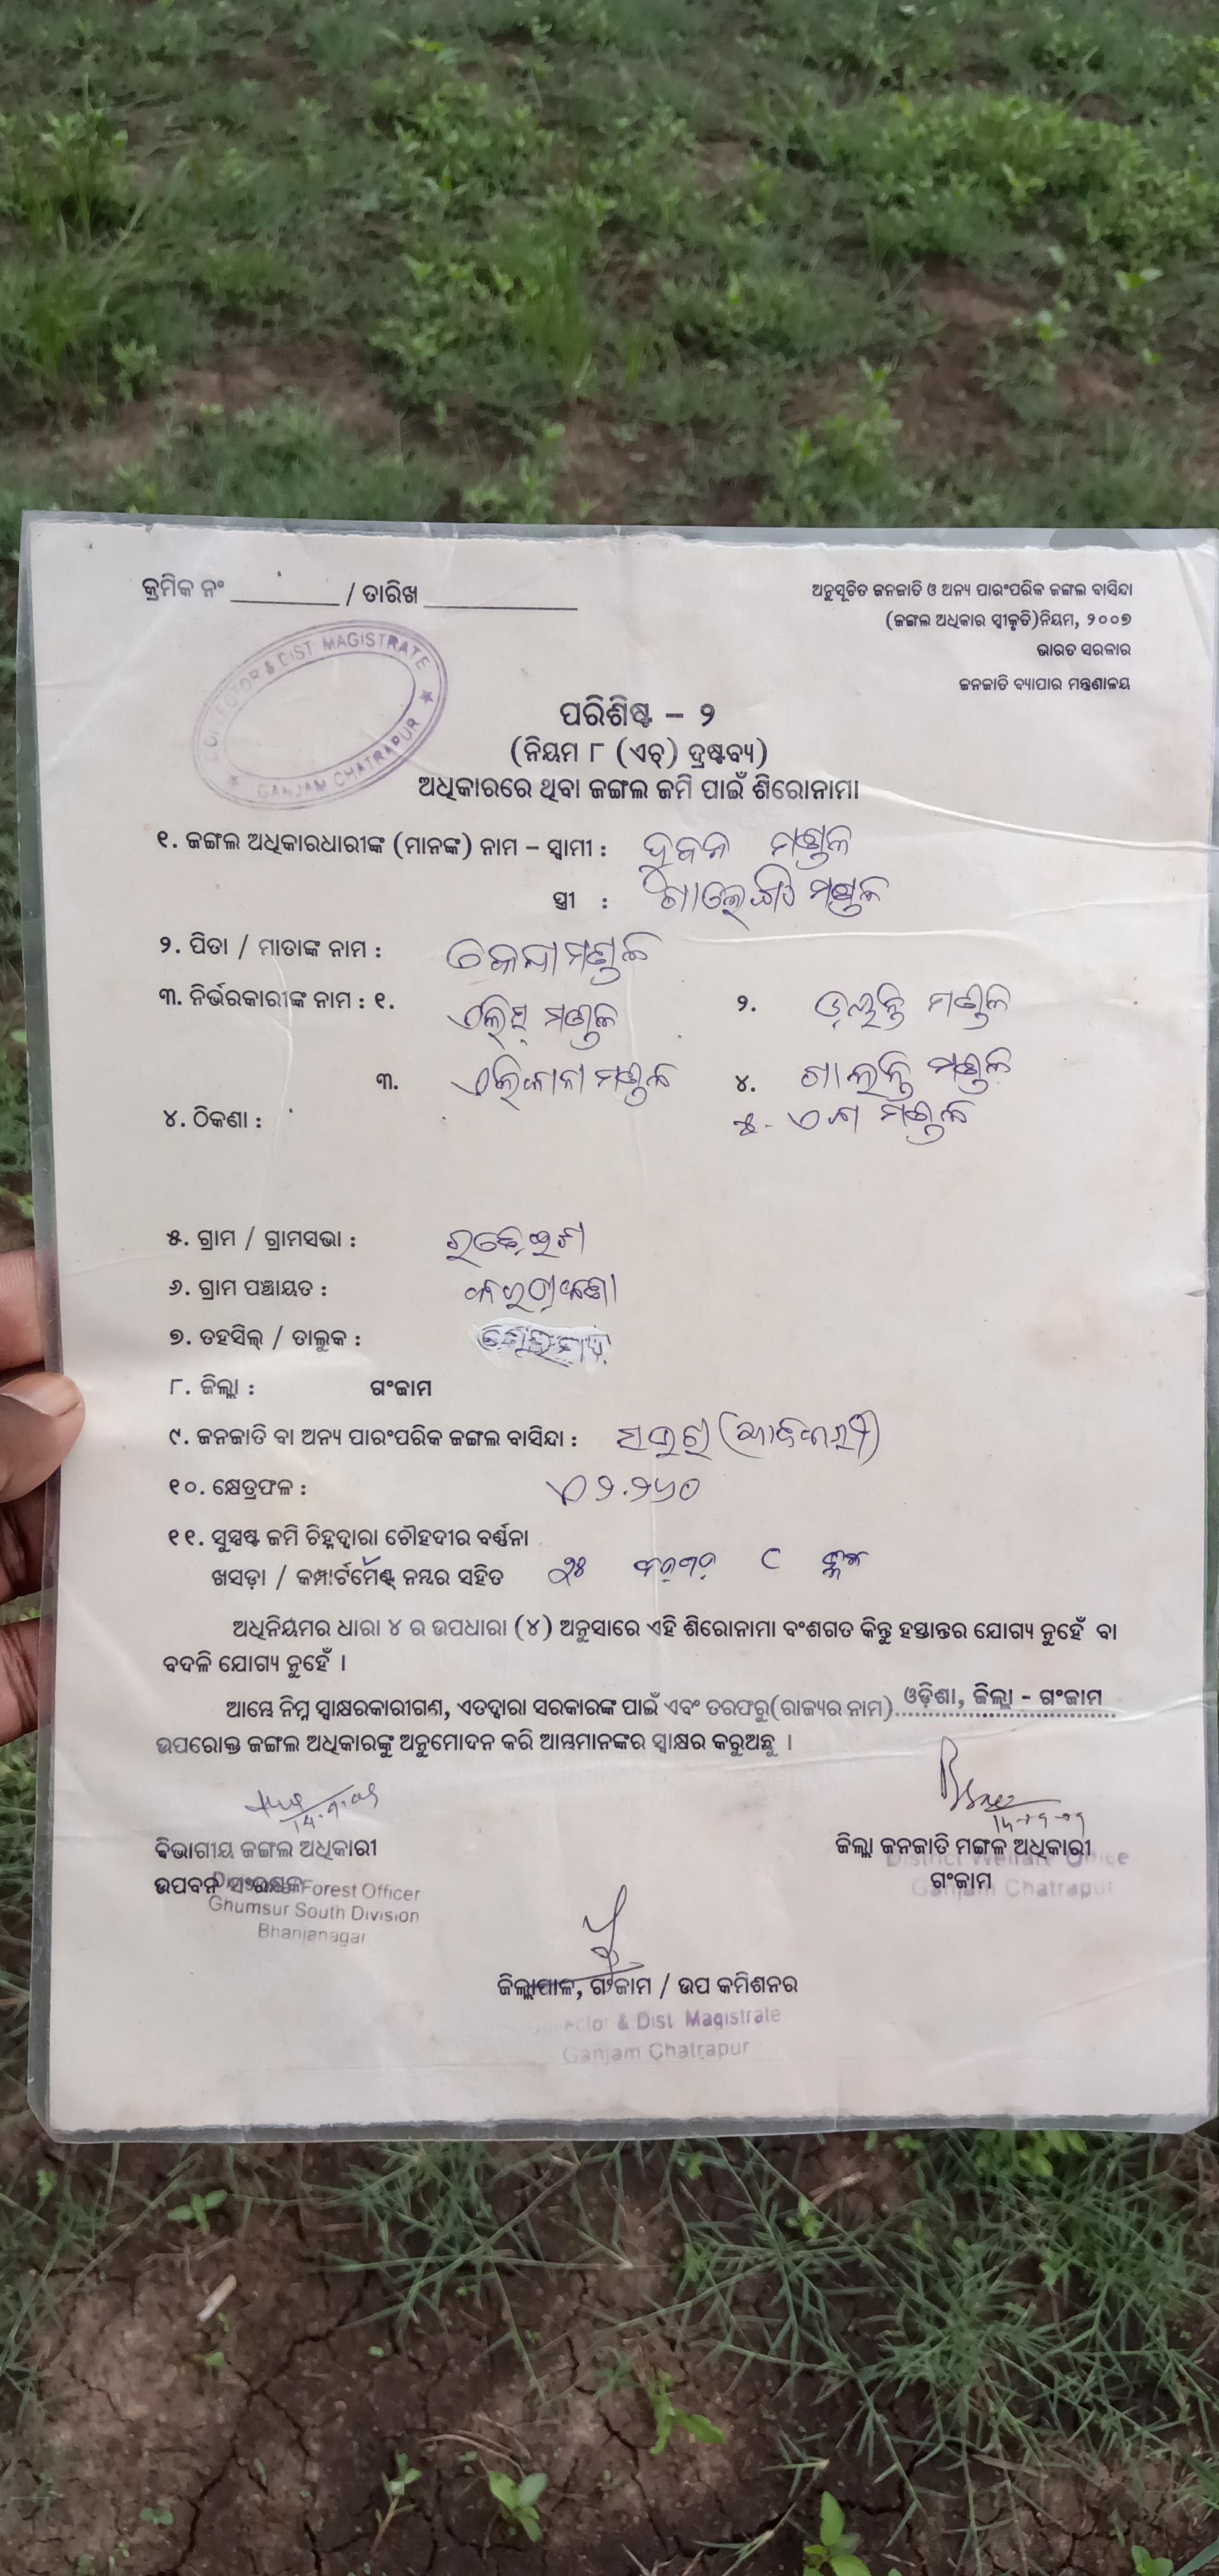 କ୍ରମିକ ନଂ ________ / ତାରିଖ ____________
ଅନୁସୂଚିତ ଜନଜାତି ଓ ଅନ୍ୟ ପାରଂପରିକ ଜଙ୍ଗଲ ବାସିନ୍ଦା
(ଜଙ୍ଗଲ ଅଧିକାର ସ୍ୱୀକୃତି)ନିୟମ, ୨୦୦୭
ଭାରତ ସରକାର
ଜନଜାତି ବ୍ୟାପାର ମନ୍ତ୍ରଣାଳୟ
COLLECTOR & DIST MAGISTRATE
GANJAM CHATRAPUR
ପରିଶିଷ୍ଟ – ୨
(ନିୟମ ୮ (ଏଚ୍) ଦ୍ରଷ୍ଟବ୍ୟ)
ଅଧିକାରରେ ଥିବା ଜଙ୍ଗଲ ଜମି ପାଇଁ ଶିରୋନାମା
୧. ଜଙ୍ଗଲ ଅଧିକାରଧାରୀଙ୍କ (ମାନଙ୍କ) ନାମ – ସ୍ୱାମୀ : ମଣ୍ଡଳ
ସ୍ତ୍ରୀ : ମଣ୍ଡଳ
୨. ପିତା / ମାତାଙ୍କ ନାମ : ମଣ୍ଡଳ
୩. ନିର୍ଭରକାରୀଙ୍କ ନାମ : ୧. ମଣ୍ଡଳ ୨. ମଣ୍ଡଳ
୩. ମଣ୍ଡଳ ୪. ମଣ୍ଡଳ
୪. ଠିକଣା : ୫- ମଣ୍ଡଳ
୫. ଗ୍ରାମ / ଗ୍ରାମସଭା :
୬. ଗ୍ରାମ ପଞ୍ଚାୟତ :
୭. ତହସିଲ୍ / ତାଲୁକ :
୮. ଜିଲ୍ଲା : ଗଂଜାମ
୯. ଜନଜାତି ବା ଅନ୍ୟ ପାରଂପରିକ ଜଙ୍ଗଲ ବାସିନ୍ଦା :
୧୦. କ୍ଷେତ୍ରଫଳ : ଏ ୨.୨୬୦
୧୧. ସୁସ୍ପଷ୍ଟ ଜମି ଚିହ୍ନଦ୍ୱାରା ଚୌହଦୀର ବର୍ଣ୍ଣନା
ଖସଡ଼ା / କମ୍ପାର୍ଟମେଣ୍ଟ୍ ନମ୍ବର ସହିତ
ଅଧିନିୟମର ଧାରା ୪ ର ଉପଧାରା (୪) ଅନୁସାରେ ଏହି ଶିରୋନାମା ବଂଶଗତ କିନ୍ତୁ ହସ୍ତାନ୍ତର ଯୋଗ୍ୟ ନୁହେଁ ବା
ବଦଳି ଯୋଗ୍ୟ ନୁହେଁ ।
ଆମ୍ଭେ ନିମ୍ନ ସ୍ୱାକ୍ଷରକାରୀଗଣ, ଏତଦ୍ୱାରା ସରକାରଙ୍କ ପାଇଁ ଏବଂ ତରଫରୁ(ରାଜ୍ୟର ନାମ) ଓଡ଼ିଶା, ଜିଲ୍ଲା - ଗଂଜାମ
ଉପରୋକ୍ତ ଜଙ୍ଗଲ ଅଧିକାରଙ୍କୁ ଅନୁମୋଦନ କରି ଆମ୍ଭମାନଙ୍କର ସ୍ୱାକ୍ଷର କରୁଅଛୁ ।
ବିଭାଗୀୟ ଜଙ୍ଗଲ ଅଧିକାରୀ
ଉପବନ ସଂରକ୍ଷକ
Divisional Forest Officer
Ghumsur South Division
Bhanjanagar
ଜିଲ୍ଲା ଜନଜାତି ମଙ୍ଗଳ ଅଧିକାରୀ
ଗଂଜାମ
District Welfare Office
Ganjam Chatrapur
ଜିଲ୍ଲାପାଳ, ଗଂଜାମ / ଉପ କମିଶନର
Collector & Dist. Magistrate
Ganjam Chatrapur